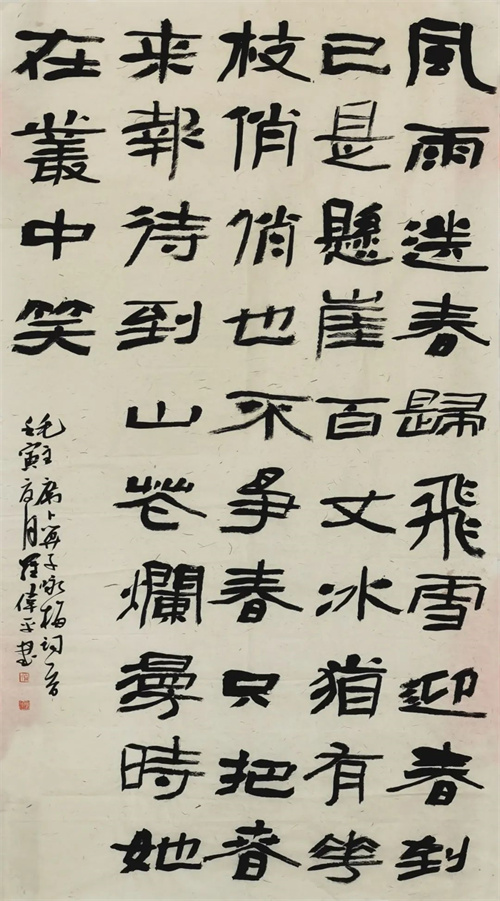 風雨送春歸飛雪迎春到
已是懸崖百丈冰猶有花
枝俏俏也不爭春只把春
来報待到山花爛曼時她
在叢中笑
毛主席卜算子咏梅詞一首
壬寅夏月羅偉平書